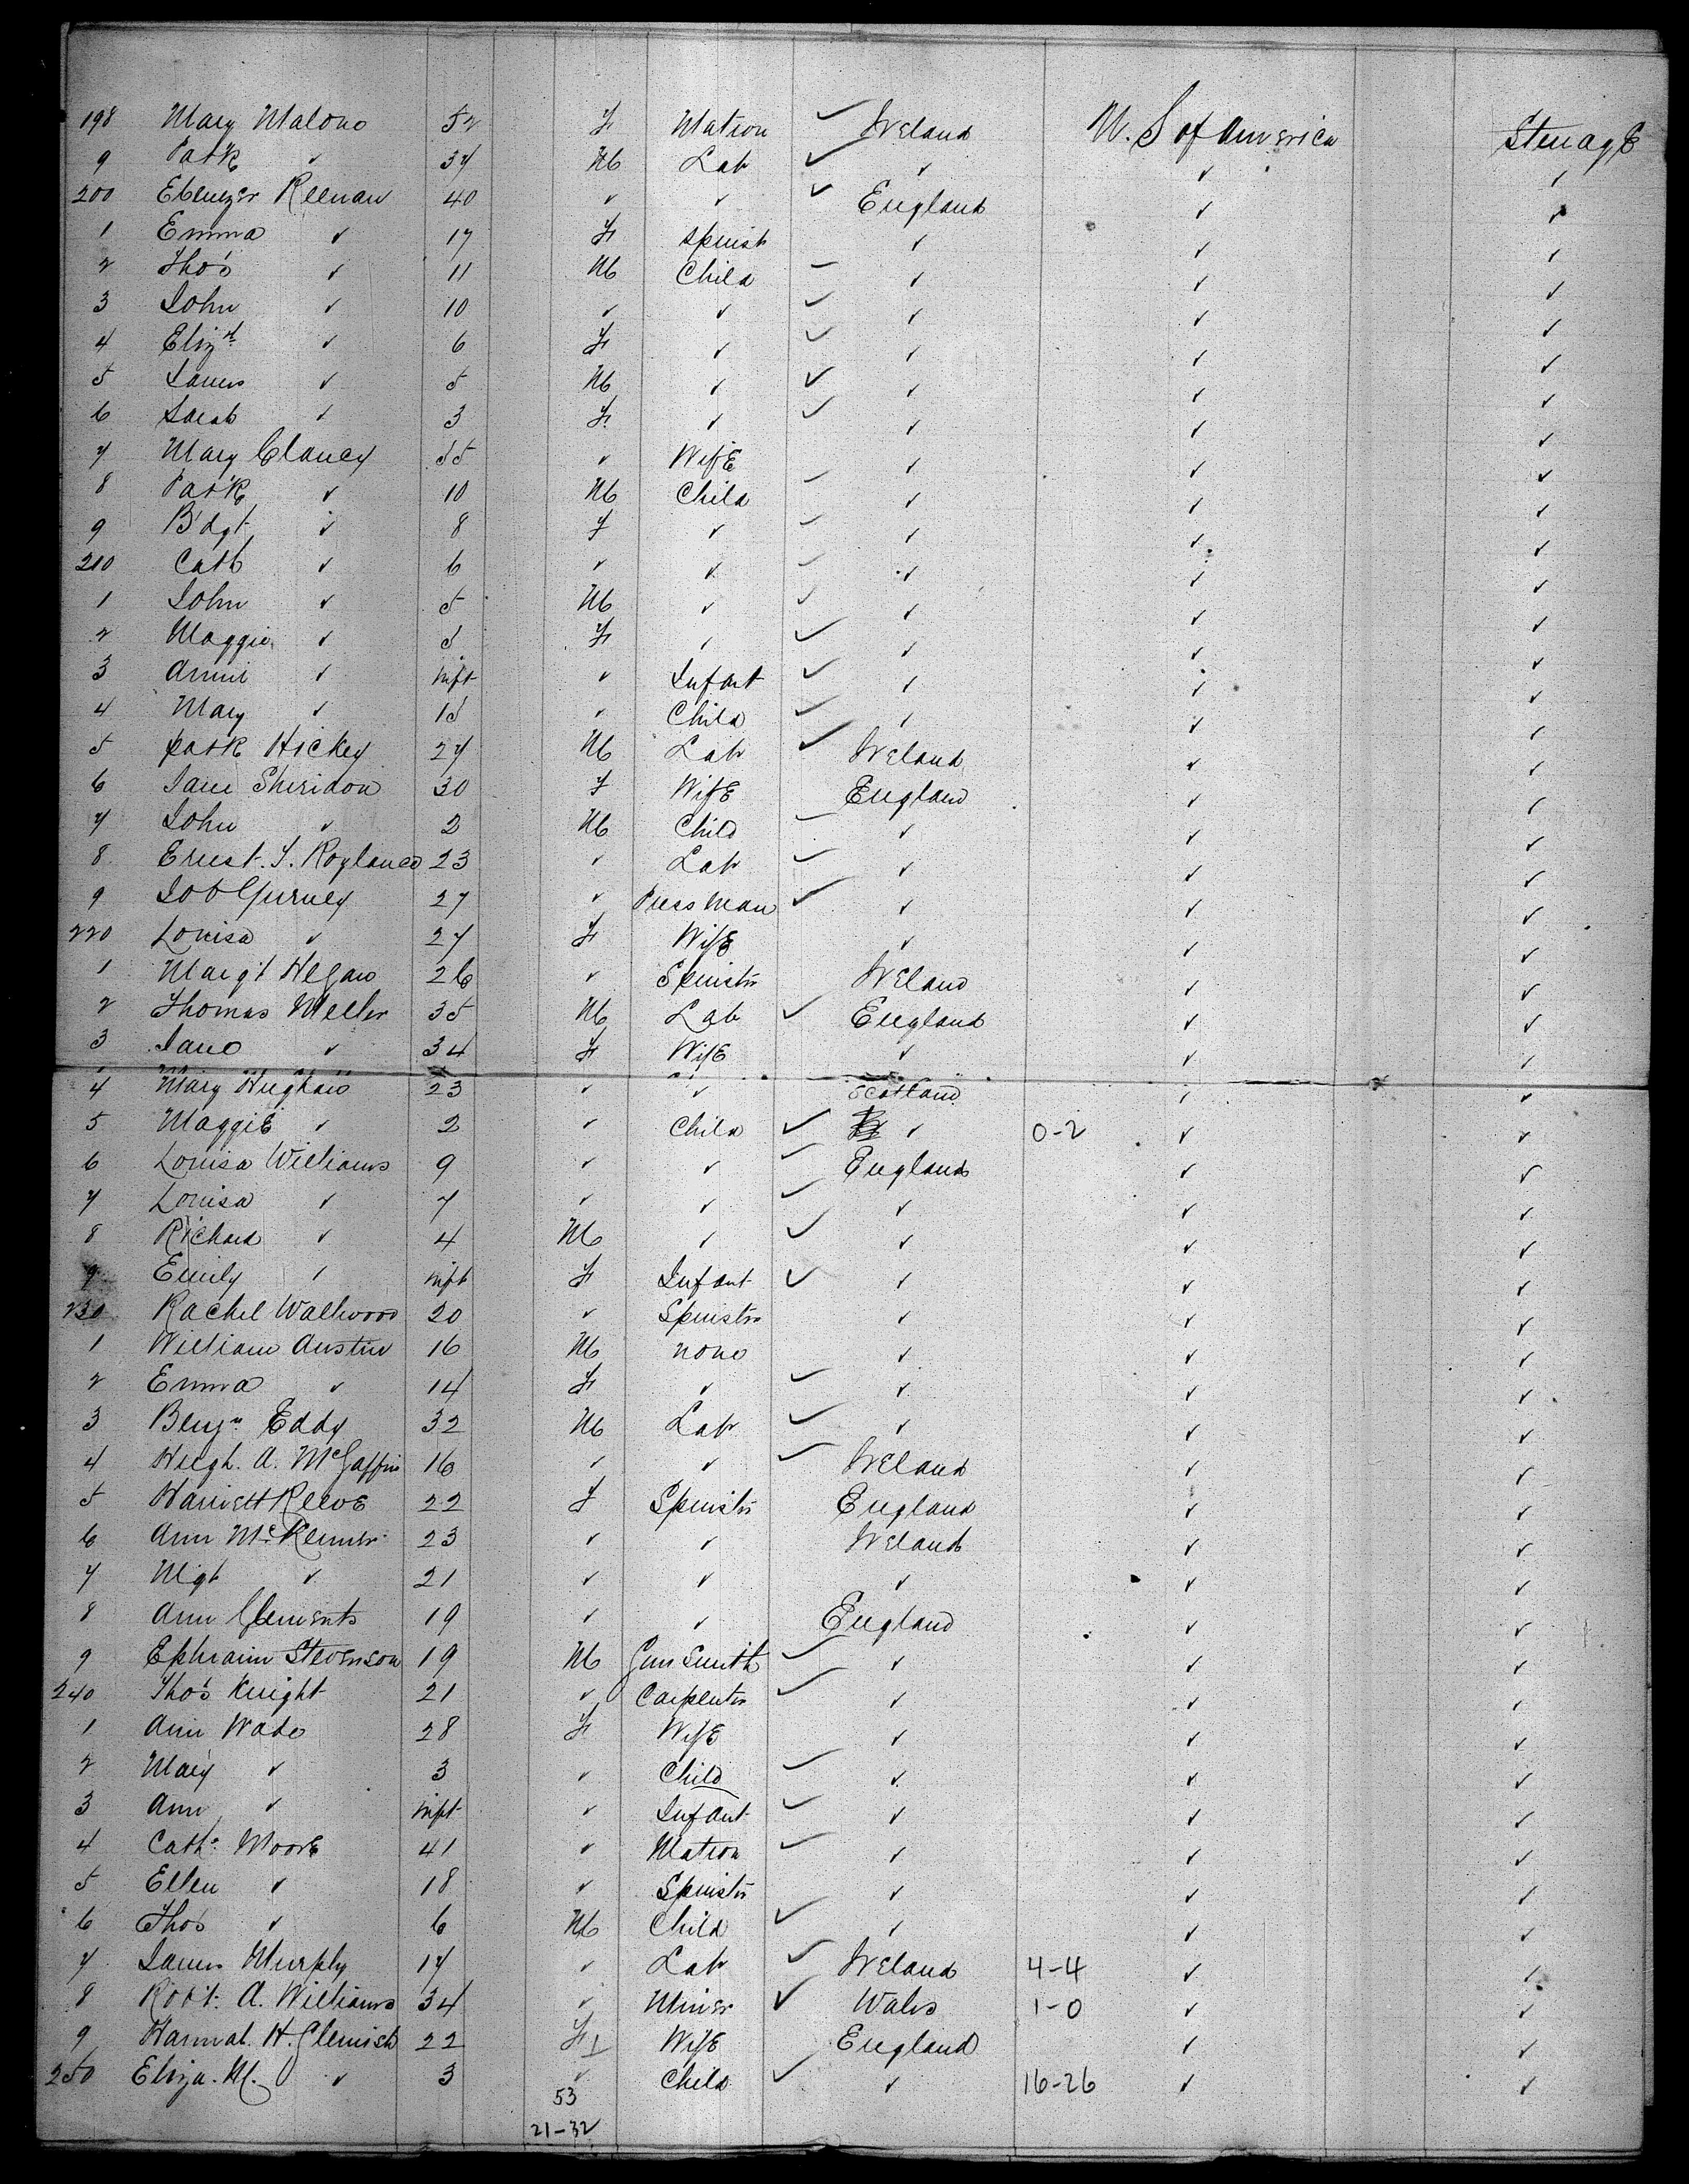 198 Mary Malone 52 F Matron ✓ Ireland U. S of America Steerage
9 Patk ✓ 34 M Lab ✓ ✓ ✓ ✓
200 Ebenezer Keenan 40 ✓ ✓ ✓ England ✓ ✓
1 Emma ✓ 17 F Spinstr ✓ ✓ ✓
2 Thos ✓ 11 M Child ✓ ✓ ✓
3 John ✓ 10 ✓ ✓ ✓ ✓ ✓ ✓
4 Elizth ✓ 6 F ✓ ✓ ✓ ✓ ✓
5 James ✓ 5 M ✓ ✓ ✓ ✓ ✓
6 Sarah ✓ 3 F ✓ ✓ ✓ ✓ ✓
7 Mary Clancy 35 ✓ Wife ✓ ✓ ✓
8 Patk ✓ 10 M Child ✓ ✓ ✓
9 Bdgt ✓ 8 F ✓ ✓ ✓ ✓
210 Cath ✓ 6 ✓ ✓ ✓ ✓ ✓
1 John ✓ 5 M ✓ ✓ ✓ ✓ ✓
2 Maggie ✓ F ✓ ✓ ✓ ✓ ✓
3 Annie ✓ inft ✓ Infant ✓ ✓ ✓ ✓
4 Mary ✓ ✓ Child ✓ ✓ ✓ ✓
5 Patk Hickey 27 M Lab ✓ Ireland ✓ ✓
6 Jane Sheridan 30 F Wife England ✓ ✓
7 John ✓ 2 M Child ✓ ✓ ✓
8 Ernest. J. Roylance 23 ✓ Lab ✓ ✓ ✓ ✓
9 Job Gurney 27 ✓ Pressman ✓ ✓ ✓ ✓
220 Louisa ✓ 27 F Wife ✓ ✓ ✓
1 Margt Hegan 26 ✓ Spinstr Ireland ✓ ✓
2 Thomas Meller 35 M Lab ✓ England ✓ ✓
3 Jane ✓ 34 F Wife ✓ ✓ ✓
4 Mary Hughan 23 ✓ ✓ Scotland ✓ ✓
5 Maggie ✓ 2 ✓ Child ✓ ✓ 0-2 ✓ ✓
6 Louisa Williams 9 ✓ ✓ ✓ England ✓ ✓
7 Louisa ✓ 7 ✓ ✓ ✓ ✓ ✓ ✓
8 Richard ✓ 4 M ✓ ✓ ✓ ✓ ✓
9 Emily ✓ inft F Infant ✓ ✓ ✓ ✓
230 Rachel Wallwood 20 ✓ Spinstr ✓ ✓ ✓
1 William Austin 16 M none ✓ ✓ ✓
2 Emma ✓ 14 F ✓ ✓ ✓ ✓ ✓
3 Benjn Eddy 32 M Lab ✓ ✓ ✓ ✓
4 Hugh. A. McGaffin 16 ✓ ✓ ✓ Ireland ✓ ✓
5 Harriett Reeve 22 F Spinstr England ✓ ✓
6 Ann McKenner 23 ✓ ✓ Ireland ✓ ✓
7 Mgt ✓ 21 ✓ ✓ ✓ ✓ ✓
8 Ann Clements 19 ✓ ✓ England ✓ ✓
9 Ephraim Stevenson 19 M Gun Smith ✓ ✓ ✓ ✓
240 Thos Knight 21 ✓ Carpenter ✓ ✓ ✓ ✓
1 Ann Wade 28 F Wife ✓ ✓ ✓
2 Mary ✓ 3 ✓ Child ✓ ✓ ✓ ✓
3 Ann ✓ inft ✓ Infant ✓ ✓ ✓ ✓
4 Cath: Moore 41 ✓ Matron ✓ ✓ ✓ ✓
5 Ellen ✓ 18 ✓ Spinstr ✓ ✓ ✓
6 Thos ✓ 6 M Child ✓ ✓ ✓ ✓
7 James Murphy 17 ✓ Lab ✓ Ireland 4-4 ✓ ✓
8 Robt. A. Williams 34 ✓ Miner ✓ Wales 1-0 ✓ ✓
9 Hannah. H. Clemish 22 F Wife England ✓ ✓
250 Eliza. M. ✓ 3 ✓ Child ✓ ✓ 16-26 ✓ ✓
53
21-32